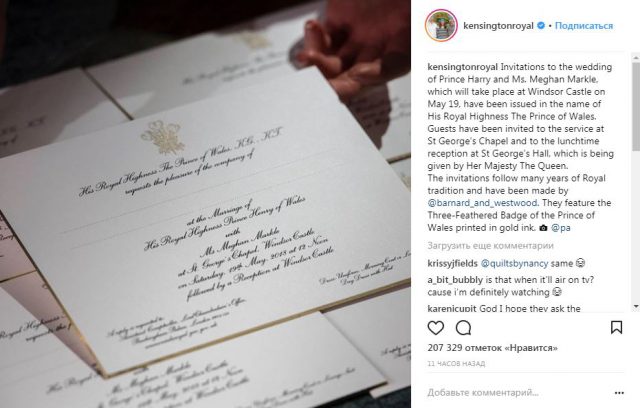 His Royal Highness The Prince of Wales, KG., KT.
requests the pleasure of the company of
at the Marriage of
His Royal Highness Prince Henry of Wales
with
Ms Meghan Markle
at St. George's Chapel, Windsor Castle
on Saturday, 19th May, 2018 at 12 Noon
followed by a Reception at Windsor Castle
A reply is requested to:
Buckingham Palace, London
Day Dress with Hat
kensingtonroyal • Подписаться
kensingtonroyal Invitations to the wedding
of Prince Harry and Ms. Meghan Markle,
which will take place at Windsor Castle on
May 19, have been issued in the name of
His Royal Highness The Prince of Wales.
Guests have been invited to the service at
St George's Chapel and to the lunchtime
reception at St George's Hall, which is being
given by Her Majesty The Queen.
The invitations follow many years of Royal
tradition and have been made by
@barnard_and_westwood. They feature the
Three-Feathered Badge of the Prince of
Wales printed in gold ink. 📷 @pa
Загрузить еще комментарии
krissyjfields @quiltsbynancy same 😂
a_bit_bubbly is that when it'll air on tv?
cause i'm definitely watching 😂
karenicupit God I hope they ask the
207 329 отметок «Нравится»
11 ЧАСОВ НАЗАД
Добавьте комментарий...